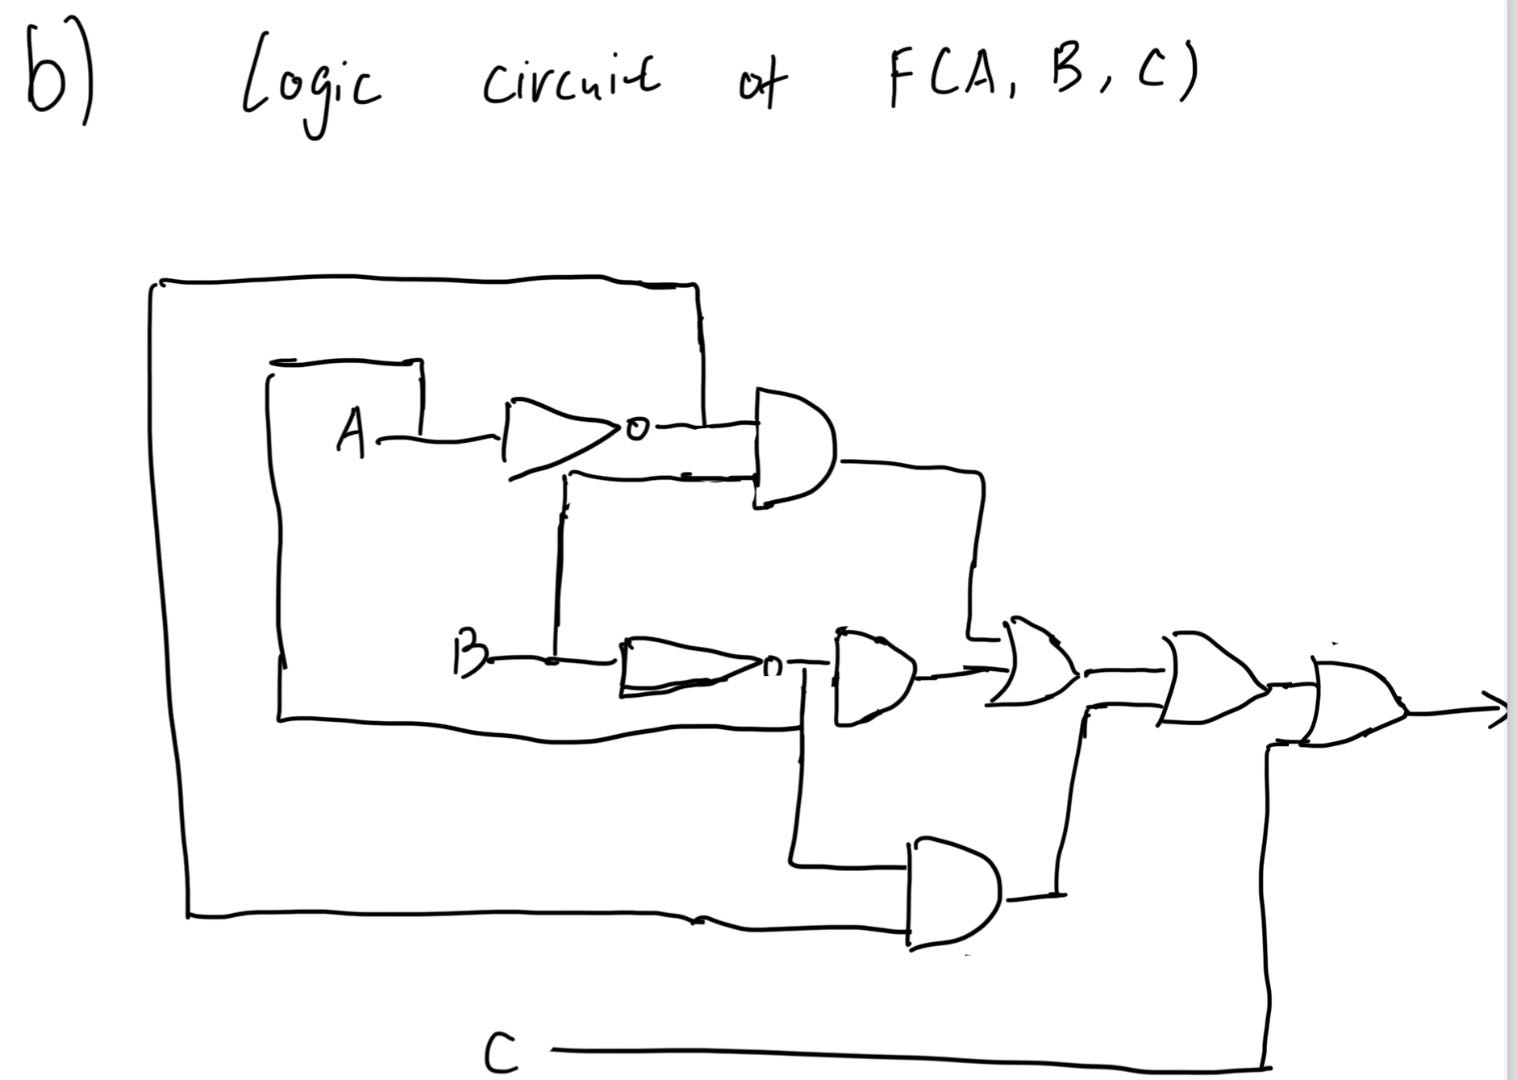 b) Logic circuit of F(A, B, C)
A
B
C